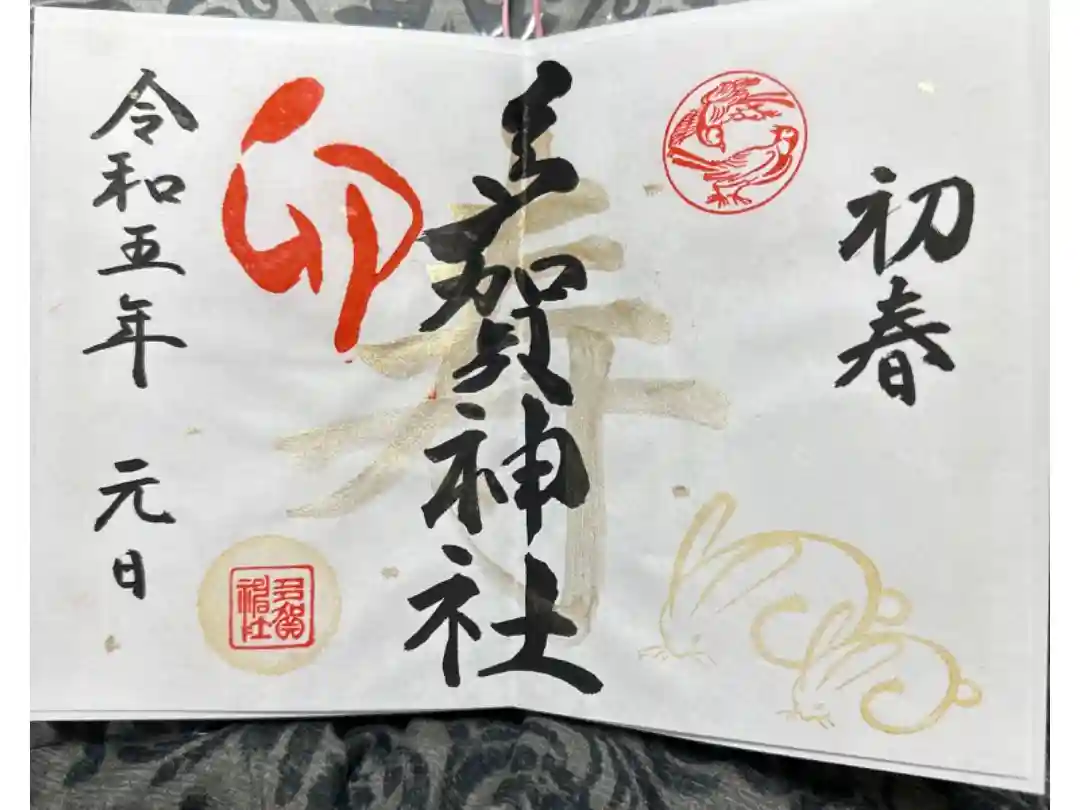 初春
多賀神社
寿
卯
多賀神社
令和五年 元日